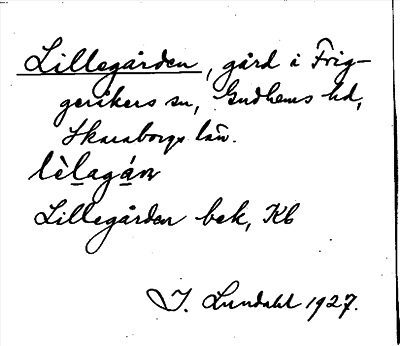 Lillegården, gård i Frig-
geråkers sn, Gudhems hd,
Skaraborgs län.
lèlagán
Lillegården bek, Kb
I. Lundahl 1927.